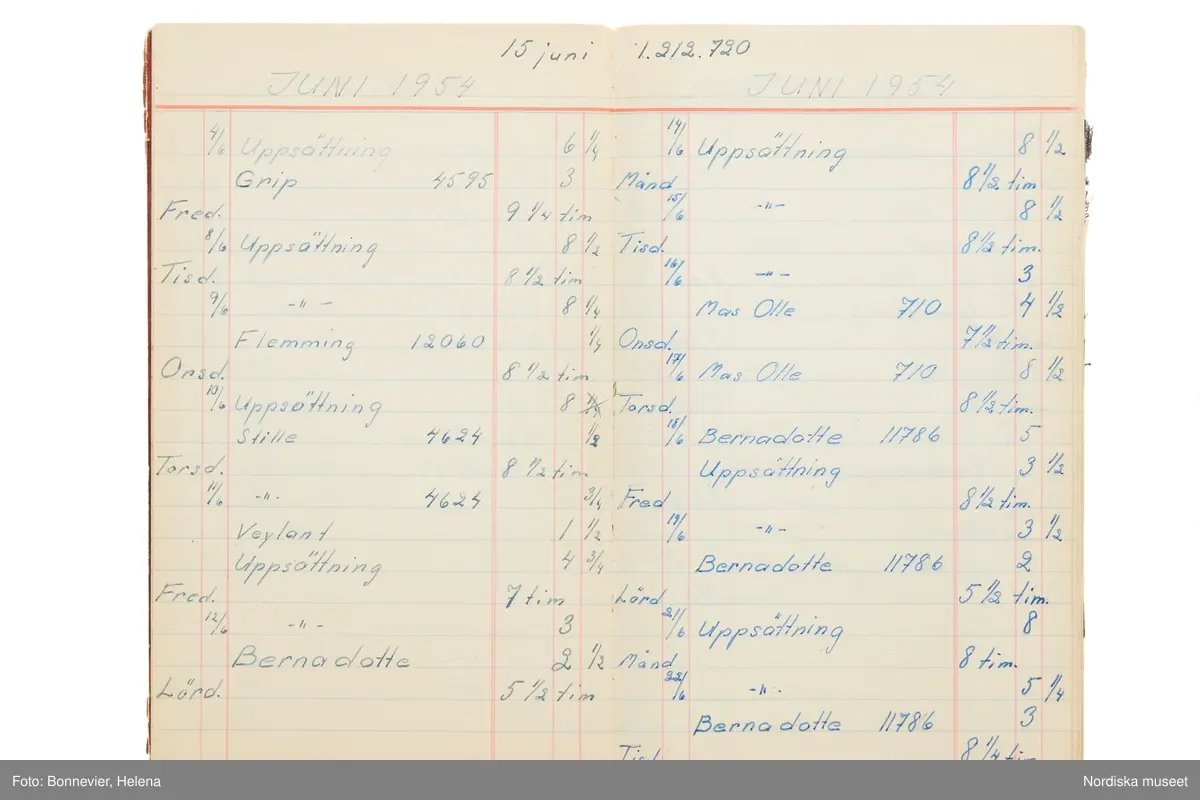 15 juni 1.212.720
JUNI 1954
4/6 Uppsättning 6 1/4
Grip 4595 3
Fred. 9 1/4 tim
8/6 Uppsättning 8 1/2
Tisd. 8 1/2 tim
9/6 -"- 8 1/4
Flemming 12060 1/4
Onsd. 8 1/2 tim
10/6 Uppsättning 8
Stille 4624 1/2
Torsd. 8 1/2 tim
11/6 -"- 4624 3/4
Veylant 1 1/2
Uppsättning 4 3/4
Fred. 7 tim
12/6 -"- 3
Bernadotte 2 1/2
Lörd. 5 1/2 tim
JUNI 1954
14/6 Uppsättning 8 1/2
Månd 8 1/2 tim
15/6 -"- 8 1/2
Tisd. 8 1/2 tim.
16/6 -"- 3
Mas Olle 710 4 1/2
Onsd. 7 1/2 tim.
17/6 Mas Olle 710 8 1/2
Torsd. 8 1/2 tim.
18/6 Bernadotte 11786 5
Uppsättning 3 1/2
Fred 8 1/2 tim.
19/6 -"- 3 1/2
Bernadotte 11786 2
Lörd 5 1/2 tim.
21/6 Uppsättning 8
Månd 8 tim.
22/6 -"- 5 1/4
Bernadotte 11786 3
Tisd 8 1/4 tim
Foto: Bonnevier, Helena
Nordiska museet